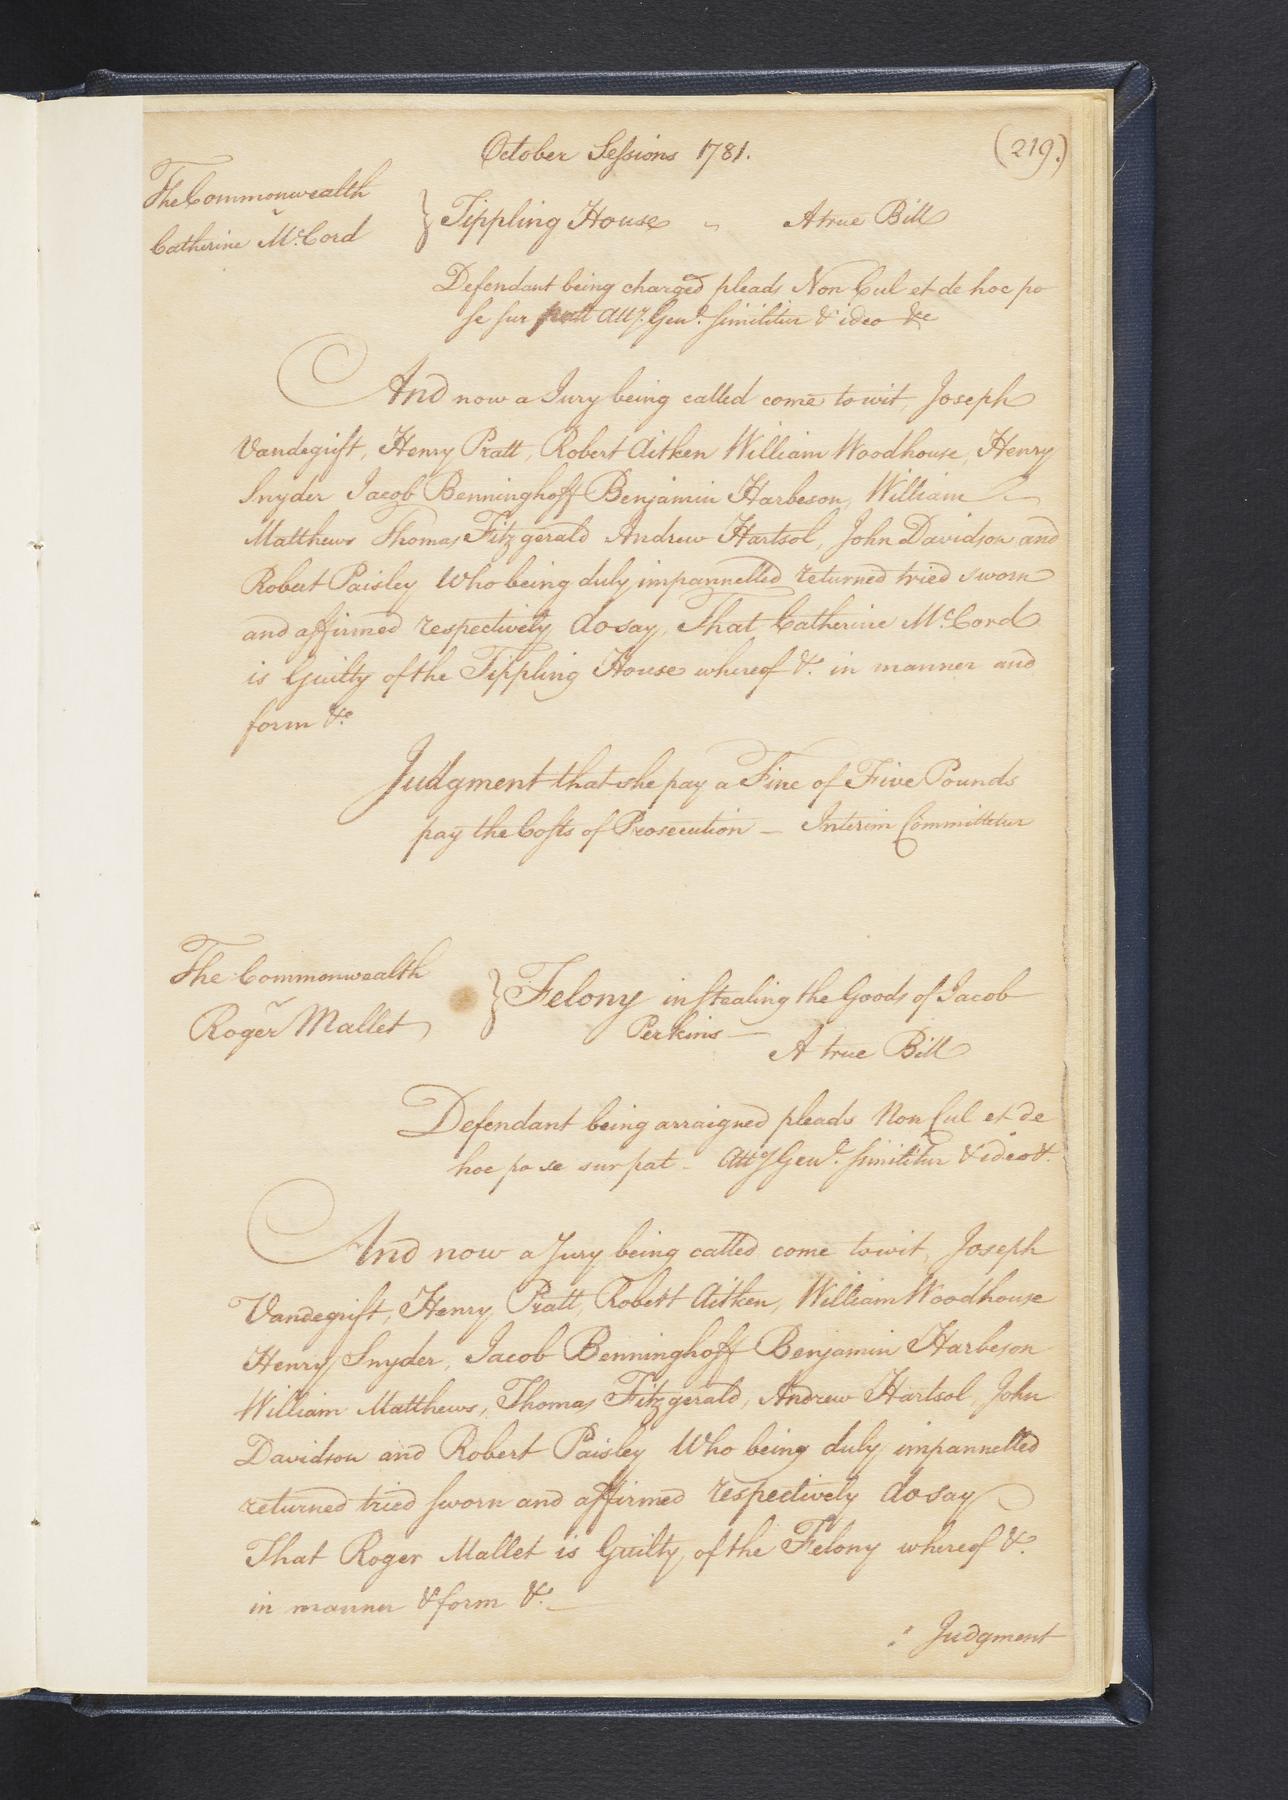 October Sessions 1781.
(219.)
The Commonwealth
v
Catherine McCord
} Tippling House " A true Bill
Defendant being charged pleads Non Cul et de hoc po
se sur Atty. Genl. similitur & ideo &c
And now a Jury being called come to wit, Joseph
Vandegrift, Henry Pratt, Robert Aitken William Woodhouse, Henry
Snyder Jacob Benninghoff Benjamin Harbeson, William
Matthews Thomas Fitzgerald Andrew Hartsol, John Davidson and
Robert Paisley Who being duly impannelled returned tried sworn
and affirmed respectively do say, That Catherine McCord
is Guilty of the Tippling House whereof &c. in manner and
form &c
Judgment that she pay a Fine of Five Pounds
pay the Costs of Prosecution — Interim Committetur
The Commonwealth
v
Roger Mallet
} Felony in stealing the Goods of Jacob
Perkins —
A true Bill
Defendant being arraigned pleads Non Cul et de
hoc po se sur pat — Atty Genl. similitur & ideo &c.
And now a Jury being called come to wit, Joseph
Vandegrift, Henry Pratt, Robert Aitken, William Woodhouse
Henry Snyder, Jacob Benninghoff Benjamin Harbeson
William Matthews, Thomas Fitzgerald, Andrew Hartsol, John
Davidson and Robert Paisley Who being duly impannelled
returned tried sworn and affirmed respectively do say
That Roger Mallet is Guilty, of the Felony whereof &c.
in manner & form &c. —
Judgment